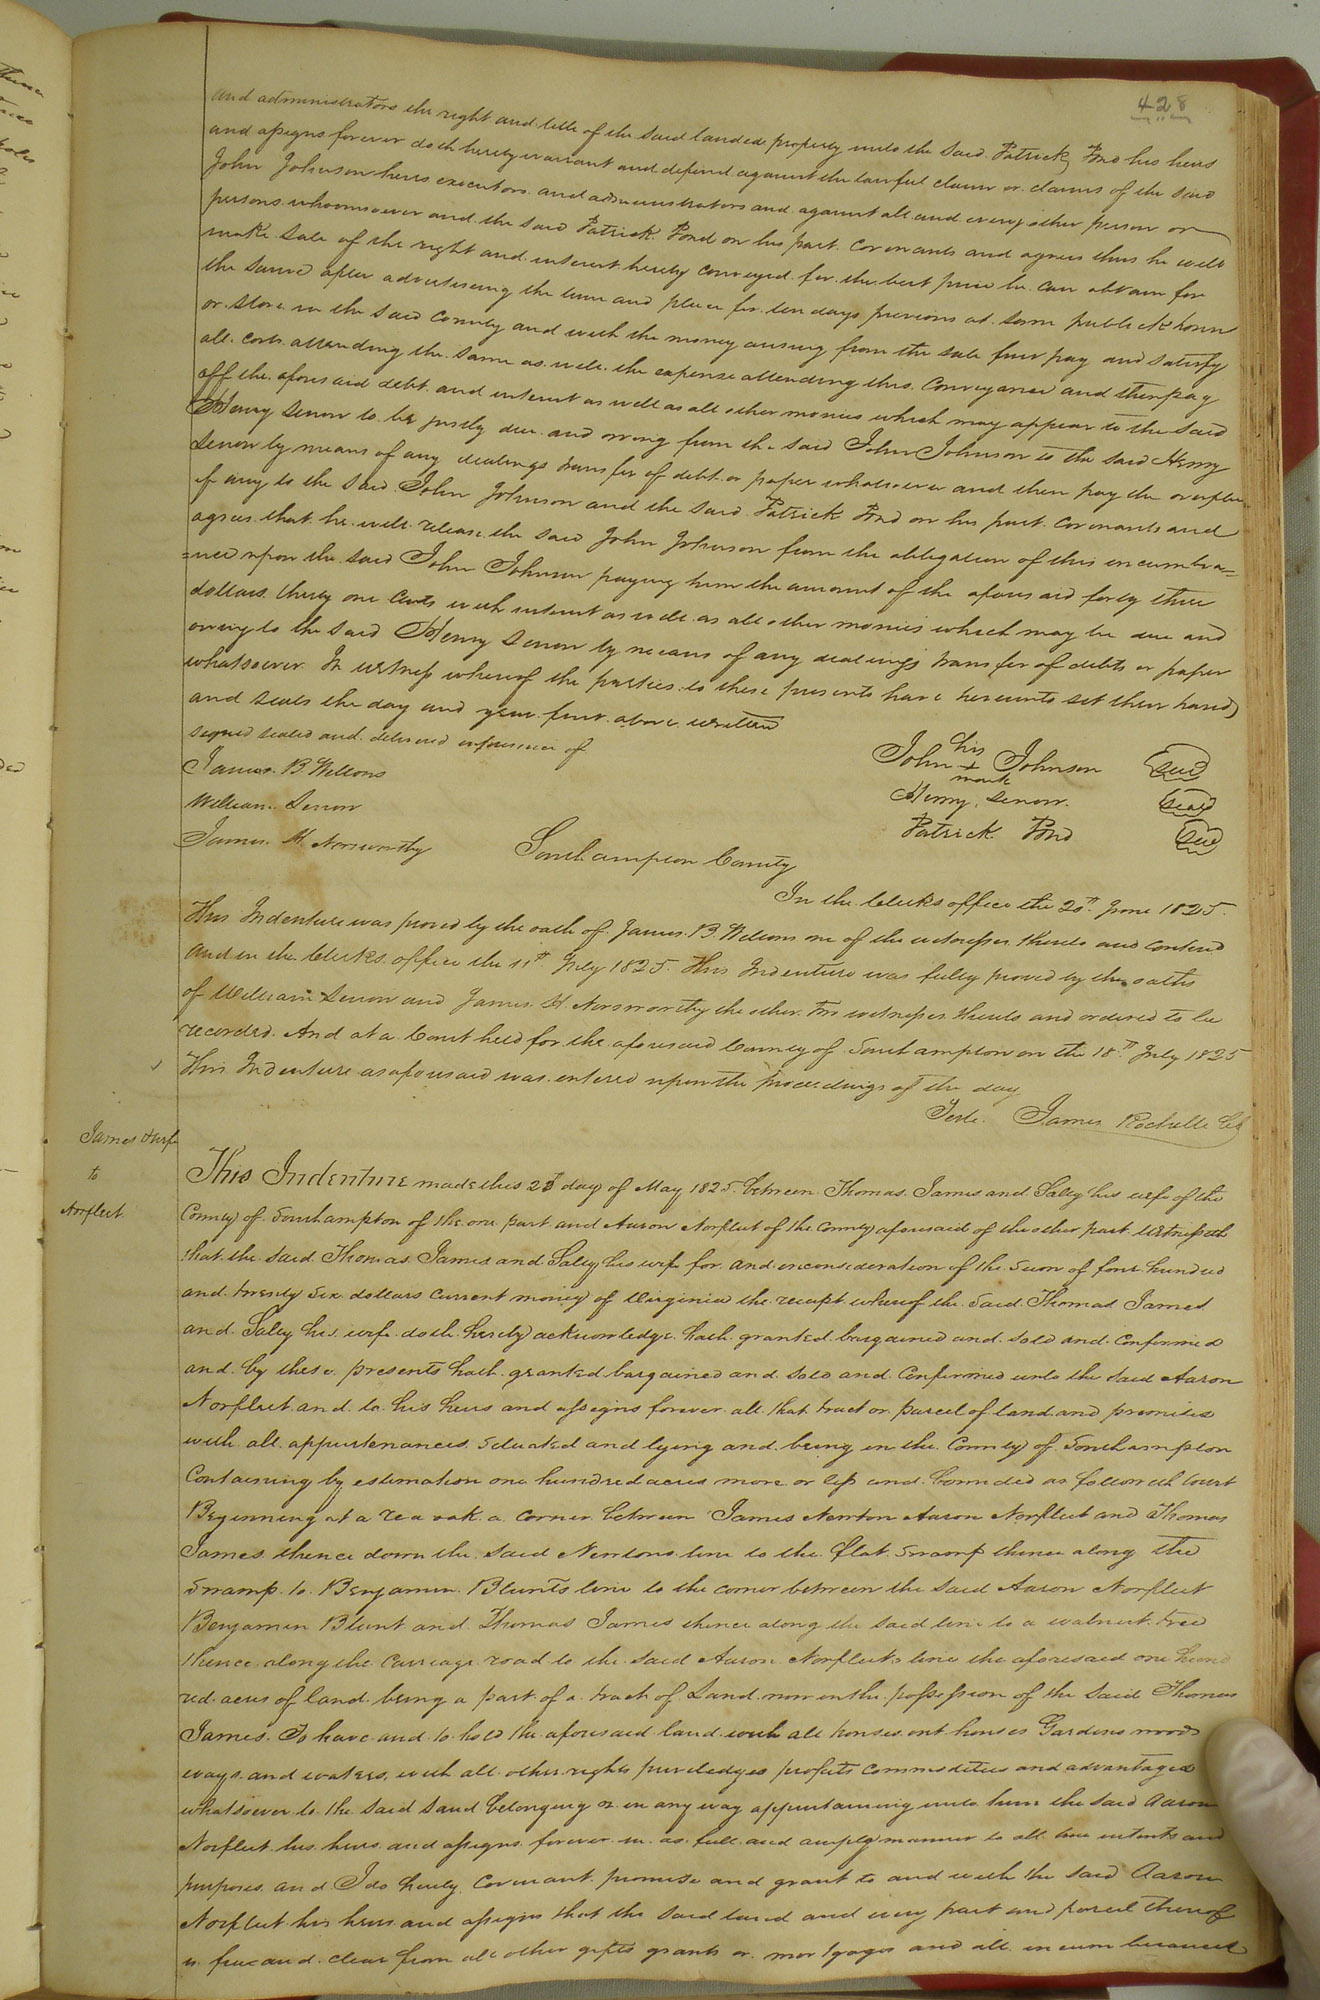 428
and administrators the right and title of the said landed property unto the said Patrick Pond his heirs
and assigns forever doth hereby warrant and defend against the lawful claim or claims of the said
John Johnson heirs executors and administrators and against all and every other person or
persons whoomsoever and the said Patrick Pond on his part covenants and agrees thus he will
make sale of the right and interest hereby conveyed for the best price he can obtain for
the same after advertiseing the time and place for ten days previous at some publick house
or store in the said County and with the money arising from the sale first pay and satisfy
all costs attending the same as well the expense attending this conveyance and then pay
off the aforesaid debt and interest as well as all other monies which may appear to the said
Henry Simon to be justly due and owing from the said John Johnson to the said Henry
by means of any dealings transfer of debt or paper whatsoever and then pay the overplus
if any to the said John Johnson and the said Patrick Pond on his part covenants and
agrees that he will release the said John Johnson from the obligation of this incumbra=
=nce upon the said John Johnson paying him the amount of the aforesaid forty three
dollars thirty one Cents with interest as well as all other monies which may be due and
owing to the said Henry by means of any dealings transfer of debts or paper
whatsoever In witness whereof the parties to these presents have hereunto set their hands
and seals the day and year first above written
signed sealed and delivered in presence of
James B Wellons
William
James H Norsworthy
John his + mark Johnson seal
Henry seal
Patrick Pond seal
Southampton County
In the Clerks office the 20th June 1825.
This Indenture was proved by the oath of James B. Wellons one of the witnesses thereto and continued
And in the Clerks office the 11th July 1825. This Indenture was fully proved by the oaths
of William and James H Norsworthy the other two witnesses thereto and ordered to be
recorded. And at a Court held for the aforesaid County of Southampton on the 18th July 1825
This Indenture as aforesaid was entered upon the proceedings of the day
Teste. James Rochelle
James & wife
to
Norfleet
This Indenture made this 23d day of May 1825 between Thomas James and Saley his wife of the
County of Southampton of the one part and Aaron Norfleet of the County aforesaid of the other part Witnesseth
that the said Thomas James and Saley his wife for and inconsideration of the Sum of four hundred
and twenty six dollars current money of Virginia the receipt whereof the said Thomas James
and Saley his wife doth hereby acknowledge hath granted bargained and sold and confirmed
and by these presents hath granted bargained and sold and confirmed unto the said Aaron
Norfleet and to his heirs and assigns forever all that tract or parcel of land and premises
with all appurtenances situated and lying and being in the County of Southampton
Containing by estimation one hundred acres more or less and bounded as followeth (to wit
Beginning at a red oak a corner between James Newton Aaron Norfleet and Thomas
James thence down the said Newtons line to the flat Swamp thence along the
Swamp to Benjamin Blunts line to the corner between the said Aaron Norfleet
Benjamin Blunt and Thomas James thence along the said line to a walnut tree
thence along the carriage road to the said Aaron Norfleets line the aforesaid one hund
red acres of land being a part of a track of Land now in the possession of the said Thomas
James. To have and to hold the aforesaid land with all houses out houses Gardens woods
ways and waters, with all other rights priviledges profits commodities and advantages
whatsoever to the said Land belonging or in any way appurtaining unto him the said Aaron
Norfleet his heirs and assigns forever in as full and ample manner to all true intents and
purposes and I do hereby covenant promise and grant to and with the said Aaron
Norfleet his heirs and assigns that the said land and every part and parcel thereof
is free and clear from all other gifts grants or mortgages and all